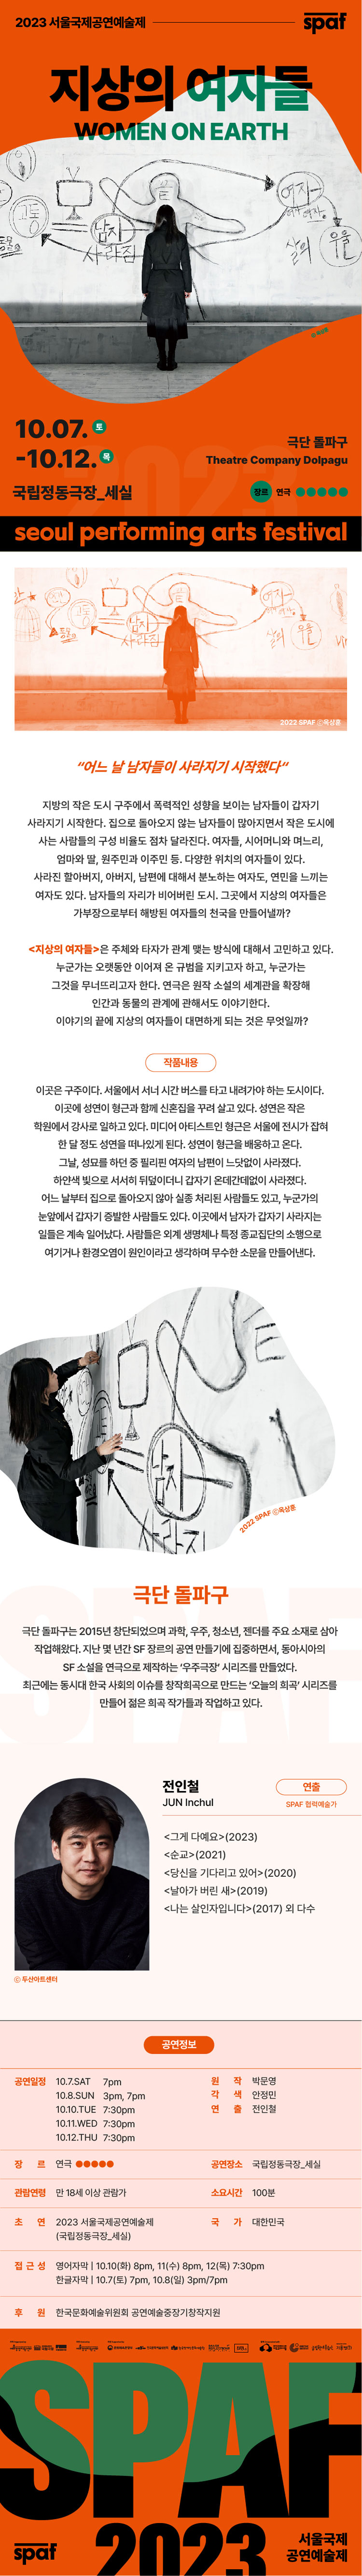 2023 서울국제공연예술제
spaf
지상의 여자들
WOMEN ON EARTH
고통
남자
사라짐
여자
삶의
우울
10.07. 토
-10.12. 목
극단 돌파구
Theatre Company Dolpagu
국립정동극장_세실
장르 연극
2023
seoul performing arts festival
남자
사라짐
여자
삶의
우울
2022 SPAF ⓒ옥상훈
“어느 날 남자들이 사라지기 시작했다“
지방의 작은 도시 구주에서 폭력적인 성향을 보이는 남자들이 갑자기
사라지기 시작한다. 집으로 돌아오지 않는 남자들이 많아지면서 작은 도시에
사는 사람들의 구성 비율도 점차 달라진다. 여자들, 시어머니와 며느리,
엄마와 딸, 원주민과 이주민 등. 다양한 위치의 여자들이 있다.
사라진 할아버지, 아버지, 남편에 대해서 분노하는 여자도, 연민을 느끼는
여자도 있다. 남자들의 자리가 비어버린 도시. 그곳에서 지상의 여자들은
가부장으로부터 해방된 여자들의 천국을 만들어낼까?
<지상의 여자들>은 주체와 타자가 관계 맺는 방식에 대해서 고민하고 있다.
누군가는 오랫동안 이어져 온 규범을 지키고자 하고, 누군가는
그것을 무너뜨리고자 한다. 연극은 원작 소설의 세계관을 확장해
인간과 동물의 관계에 관해서도 이야기한다.
이야기의 끝에 지상의 여자들이 대면하게 되는 것은 무엇일까?
작품내용
이곳은 구주이다. 서울에서 서너 시간 버스를 타고 내려가야 하는 도시이다.
이곳에 성연이 형근과 함께 신혼집을 꾸려 살고 있다. 성연은 작은
학원에서 강사로 일하고 있다. 미디어 아티스트인 형근은 서울에 전시가 잡혀
한 달 정도 성연을 떠나있게 된다. 성연이 형근을 배웅하고 온다.
그날, 성묘를 하던 중 필리핀 여자의 남편이 느닷없이 사라졌다.
하얀색 빛으로 서서히 뒤덮이더니 갑자기 온데간데없이 사라졌다.
어느 날부터 집으로 돌아오지 않아 실종 처리된 사람들도 있고, 누군가의
눈앞에서 갑자기 증발한 사람들도 있다. 이곳에서 남자가 갑자기 사라지는
일들은 계속 일어났다. 사람들은 외계 생명체나 특정 종교집단의 소행으로
여기거나 환경오염이 원인이라고 생각하며 무수한 소문을 만들어낸다.
남자
2022 SPAF ⓒ옥상훈
SPAF
극단 돌파구
극단 돌파구는 2015년 창단되었으며 과학, 우주, 청소년, 젠더를 주요 소재로 삼아
작업해왔다. 지난 몇 년간 SF 장르의 공연 만들기에 집중하면서, 동아시아의
SF 소설을 연극으로 제작하는 ‘우주극장’ 시리즈를 만들었다.
최근에는 동시대 한국 사회의 이슈를 창작희곡으로 만드는 ‘오늘의 희곡’ 시리즈를
만들어 젊은 희곡 작가들과 작업하고 있다.
전인철
JUN Inchul
연출
SPAF 협력예술가
<그게 다예요>(2023)
<순교>(2021)
<당신을 기다리고 있어>(2020)
<날아가 버린 새>(2019)
<나는 살인자입니다>(2017) 외 다수
ⓒ 두산아트센터
공연정보
공연일정 10.7.SAT 7pm
10.8.SUN 3pm, 7pm
10.10.TUE 7:30pm
10.11.WED 7:30pm
10.12.THU 7:30pm
원 작 박문영
각 색 안정민
연 출 전인철
장 르 연극
공연장소 국립정동극장_세실
관람연령 만 18세 이상 관람가
소요시간 100분
초 연 2023 서울국제공연예술제
(국립정동극장_세실)
국 가 대한민국
접 근 성 영어자막 | 10.10(화) 8pm, 11(수) 8pm, 12(목) 7:30pm
한글자막 | 10.7(토) 7pm, 10.8(일) 3pm/7pm
후 원 한국문화예술위원회 공연예술중장기창작지원
SPAF
2023
spaf
서울국제
공연예술제